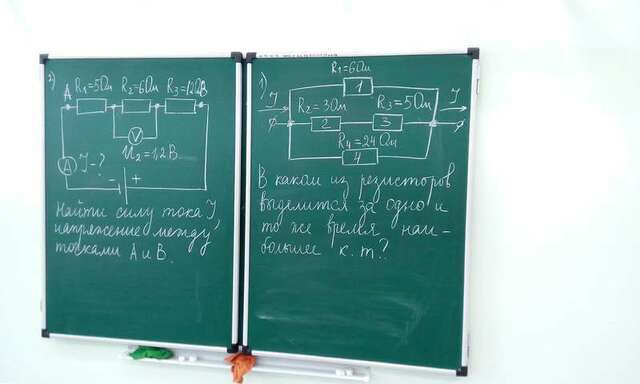 2)
R1=5Ом R2=6Ом R3=12Ом
A B
V
U2=1,2В
A I-?
- +
Найти силу тока I,
напряжение между
точками А и В.
1)
R1=6Ом
1
I R2=3Ом R3=5Ом I
2 3
R4=24Ом
4
В каком из резисторов
выделится за одно и
то же время наи-
большее к.т?